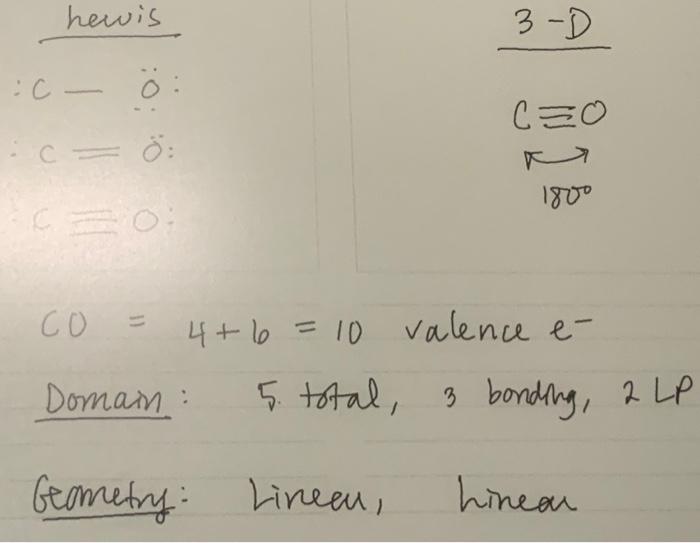 Lewis
:C — Ö:
:C = Ö:
:C ≡ O:
3-D
C≡O
180°
CO = 4+6 = 10 valence e-
Domain: 5 total, 3 bonding, 2 LP
Geometry: Linear, Linear